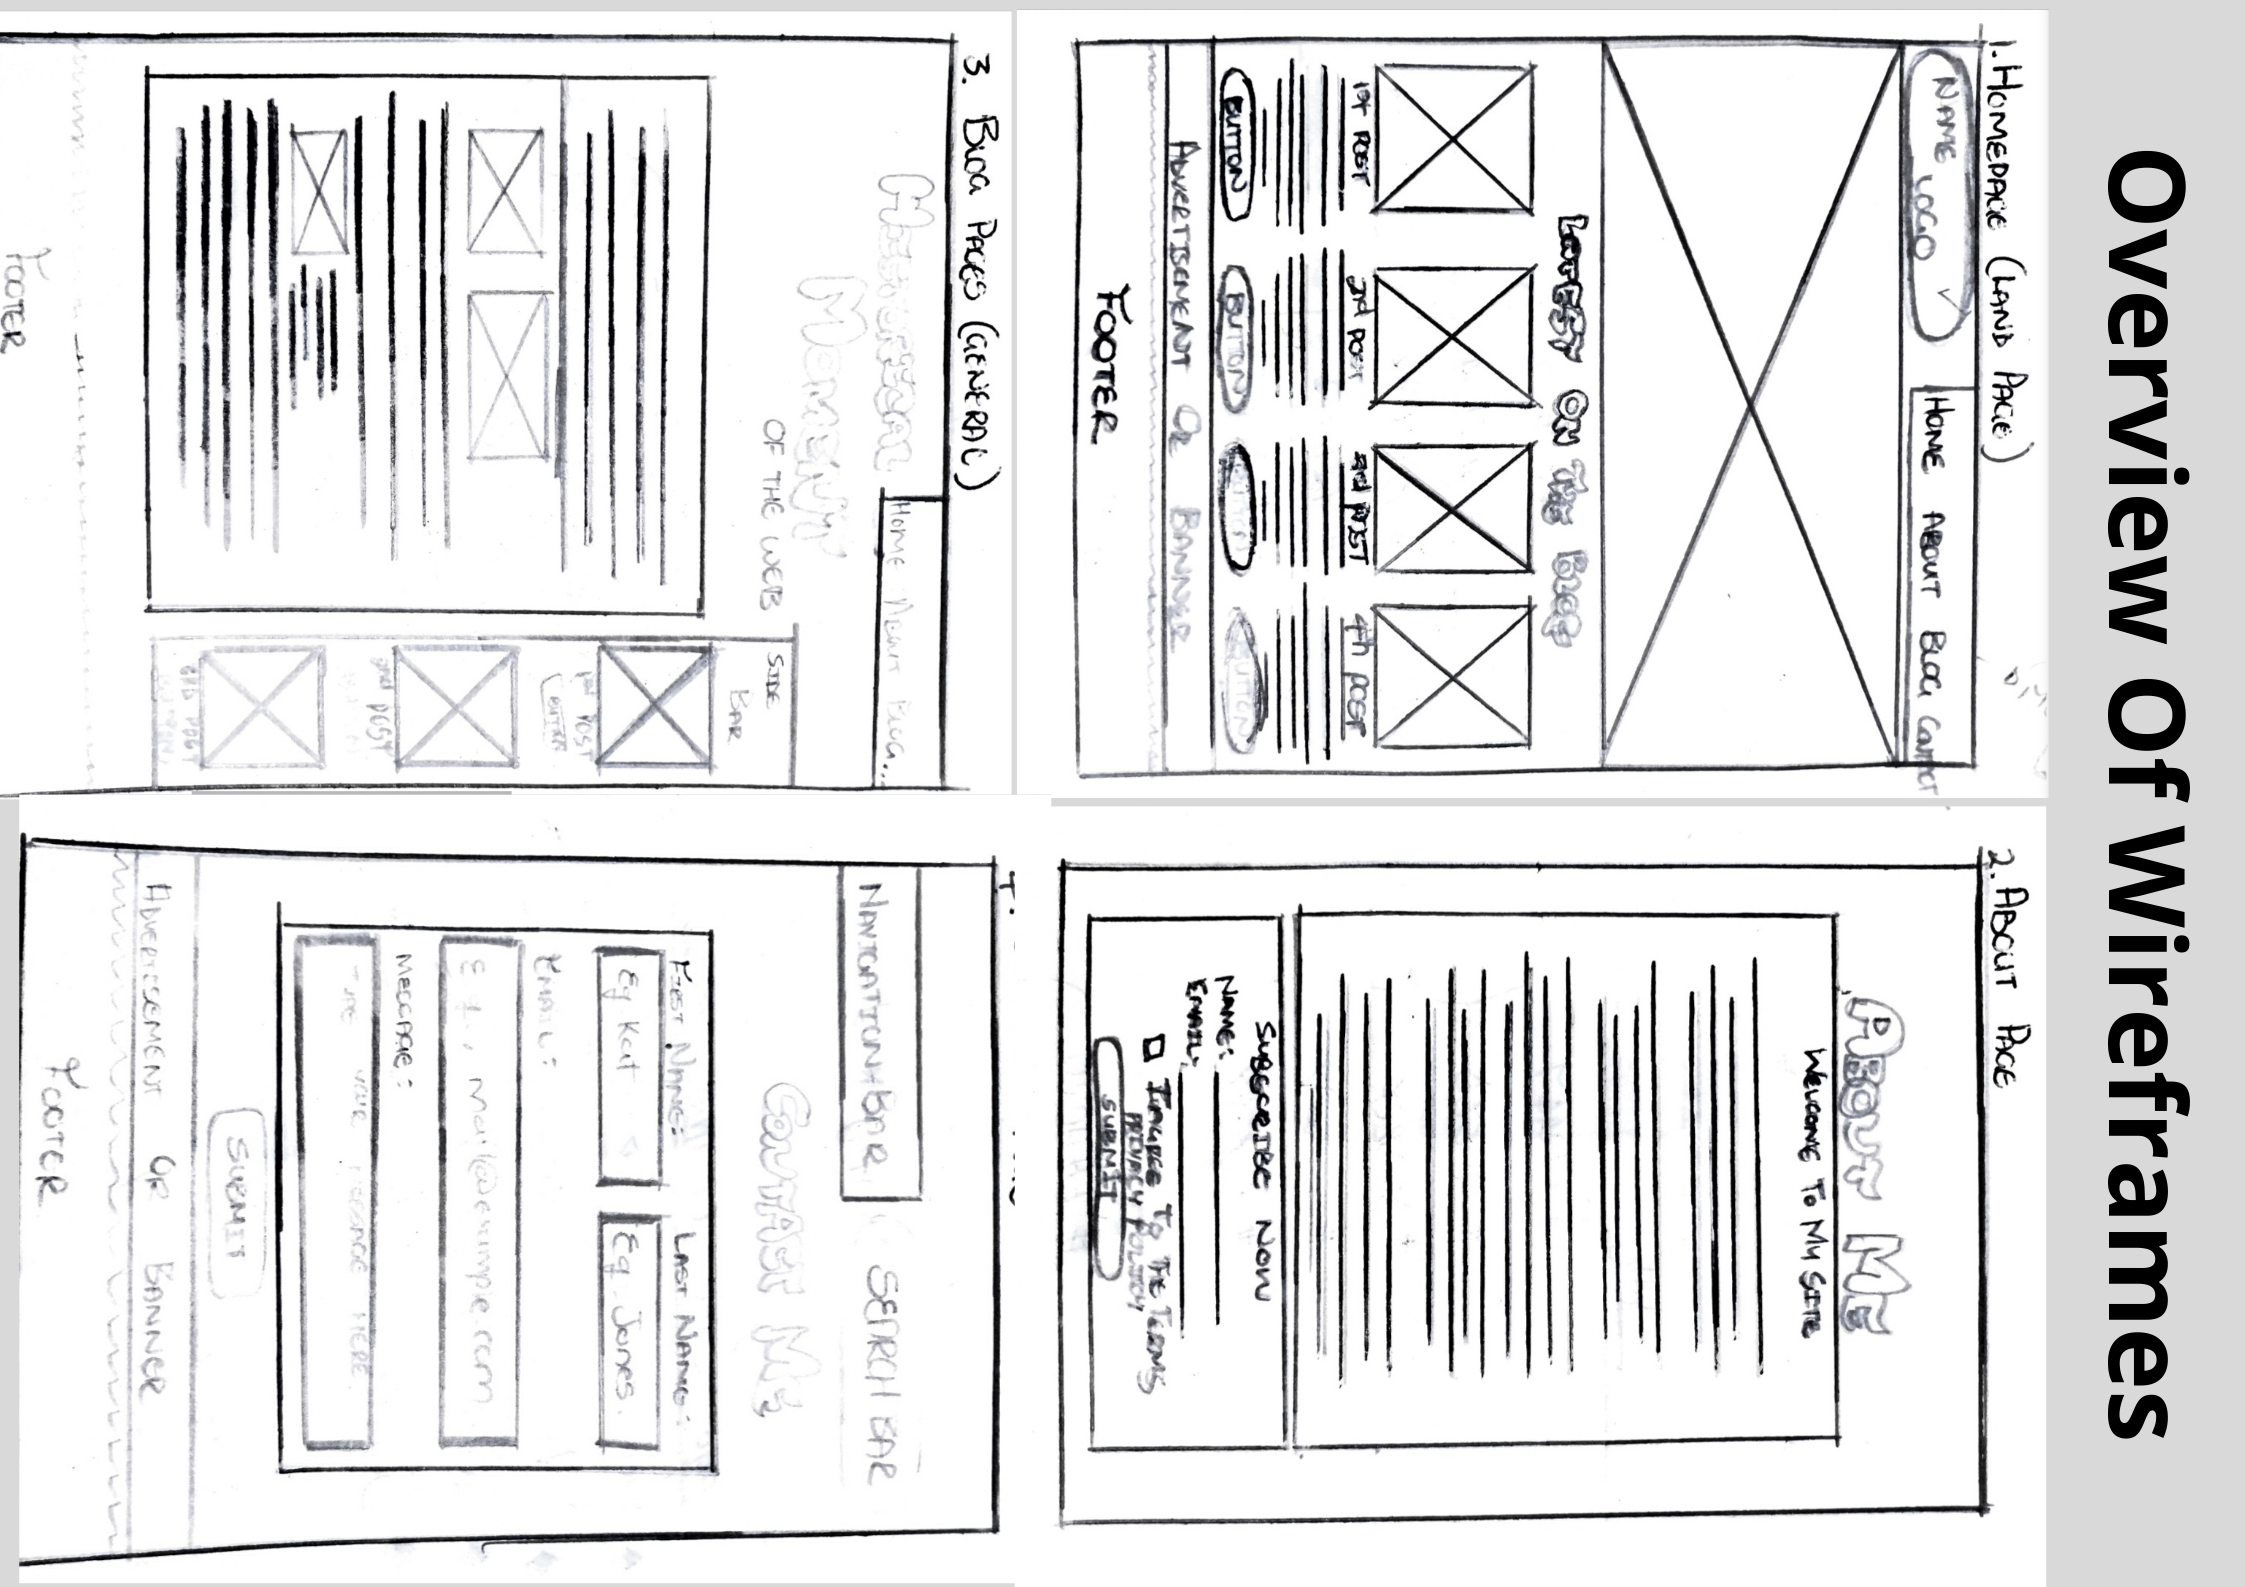 Overview Of Wireframes
1. HOMEPAGE (LAND PAGE)
NAME LOGO
HOME ABOUT BLOG CONTACT
LATEST ON THE BLOG
1st POST
2nd POST
3rd POST
4th POST
BUTTON
BUTTON
BUTTON
BUTTON
ADVERTISEMENT OR BANNER
FOOTER
2. ABOUT PAGE
ABOUT ME
WELCOME TO MY SITE
SUBSCRIBE NOW
NAME:
EMAIL:
I AGREE TO THE TERMS
PRIVACY POLICY
SUBMIT
3. BLOG PAGES (GENERAL)
HOME ABOUT BLOG...
MOMENT
OF THE WEB
SIDE
BAR
1st POST
BUTTON
2nd POST
3RD POST
FOOTER
NAVIGATION BAR
SEARCH BAR
CONTACT ME
FIRST NAME:
LAST NAME:
Eg Kat
Eg. Jones.
EMAIL:
Eg., mail@example.com
MESSAGE:
TYPE YOUR MESSAGE HERE.
SUBMIT
ADVERTISEMENT OR BANNER
FOOTER